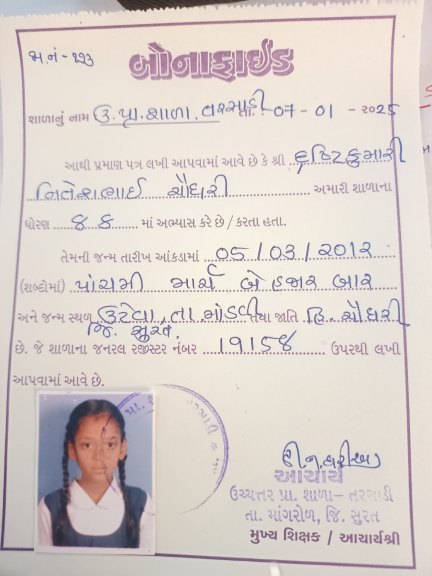 જા.નં - ૧૧૩
બોનાફાઈડ
શાળાનું નામ ઉ.પ્રા.શાળા. તરસાડી તા. 07 - 01 - ૨૦25
આથી પ્રમાણ પત્ર લખી આપવામાં આવે છે કે શ્રી દ્રષ્ટિકુમારી
નિતેશભાઈ ચૌધરી અમારી શાળાના
ધોરણ માં અભ્યાસ કરે છે / કરતા હતા.
તેમની જન્મ તારીખ આંકડામાં 05/03/2012
(શબ્દોમાં) પાંચમી માર્ચ બે હજાર બાર
અને જન્મ સ્થળ ઉટેવા, તા. માંડવી તથા જાતિ હિ. ચૌધરી
જિ. સુરત.
છે. જે શાળાના જનરલ રજીસ્ટર નંબર 19154 ઉપરથી લખી
આપવામાં આવે છે.
આચાર્ય
ઉચ્ચત્તર પ્રા. શાળા – તરસાડી
તા. માંગરોળ, જિ. સુરત
મુખ્ય શિક્ષક / આચાર્યશ્રી